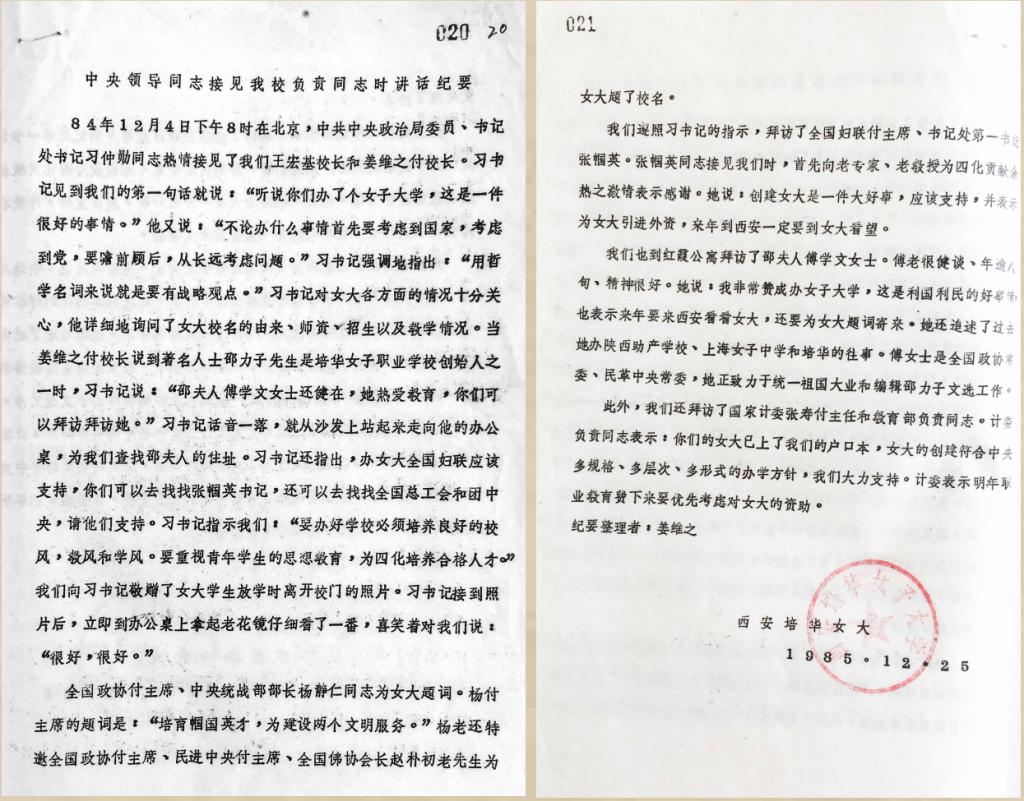 020 20
中央领导同志接见我校负责同志时讲话纪要
84年12月4日下午8时在北京，中共中央政治局委员、书记
处书记习仲勋同志热情接见了我们王宏基校长和姜维之付校长。习书
记见到我们的第一句话就说：“听说你们办了个女子大学，这是一件
很好的事情。”他又说：“不论办什么事情首先要考虑到国家，考虑
到党，要瞻前顾后，从长远考虑问题。”习书记强调地指出：“用哲
学名词来说就是要有战略观点。”习书记对女大各方面的情况十分关
心，他详细地询问了女大校名的由来、师资、招生以及教学情况。当
姜维之付校长说到著名人士邵力子先生是培华女子职业学校创始人之
一时，习书记说：“邵夫人傅学文女士还健在，她热爱教育，你们可
以拜访拜访她。”习书记话音一落，就从沙发上站起来走向他的办公
桌，为我们查找邵夫人的住址。习书记还指出，办女大全国妇联应该
支持，你们可以去找找张帼英书记，还可以去找找全国总工会和团中
央，请他们支持。习书记指示我们：“要办好学校必须培养良好的校
风，教风和学风。要重视青年学生的思想教育，为四化培养合格人才。”
我们向习书记敬赠了女大学生放学时离开校门的照片。习书记接到照
片后，立即到办公桌上拿起老花镜仔细看了一番，喜笑着对我们说：
“很好，很好。”
全国政协付主席、中央统战部部长杨静仁同志为女大题词。杨付
主席的题词是：“培育帼国英才，为建设两个文明服务。”杨老还特
邀全国政协付主席、民进中央付主席、全国佛协会长赵朴初老先生为
021
女大题了校名。
我们遵照习书记的指示，拜访了全国妇联付主席、书记处第一书记
张帼英。张帼英同志接见我们时，首先向老专家、老教授为四化贡献余
热之激情表示感谢。她说：创建女大是一件大好事，应该支持，并表示
为女大引进外资，来年到西安一定要到女大看望。
我们也到红霞公寓拜访了邵夫人傅学文女士。傅老很健谈、年逾八
旬、精神很好。她说：我非常赞成办女子大学，这是利国利民的好事情
也表示来年要来西安看看女大，还要为女大题词寄来。她还追述了过去
她办陕西助产学校、上海女子中学和培华的往事。傅女士是全国政协常
委、民革中央常委，她正致力于统一祖国大业和编辑邵力子文选工作。
此外，我们还拜访了国家计委张寿付主任和教育部负责同志。计委
负责同志表示：你们的女大已上了我们的户口本，女大的创建符合中央
多规格、多层次、多形式的办学方针，我们大力支持。计委表示明年职
业教育费下来要优先考虑对女大的资助。
纪要整理者：姜维之
西安培华女大
1985.12.25